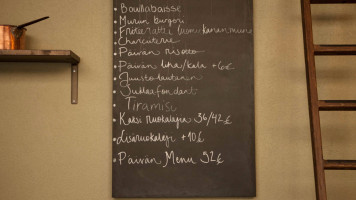 · Bouillabaisse
· Murun burgeri
· Charcuterie
· Päivän risotto
· Päivän liha/kala +6€
· Juustolautanen
· Suklaafondant
· Tiramisu
· Kaksi ruokalajia 36/42€
· Lisäruokalaji +10€
· Päivän Menu 52€